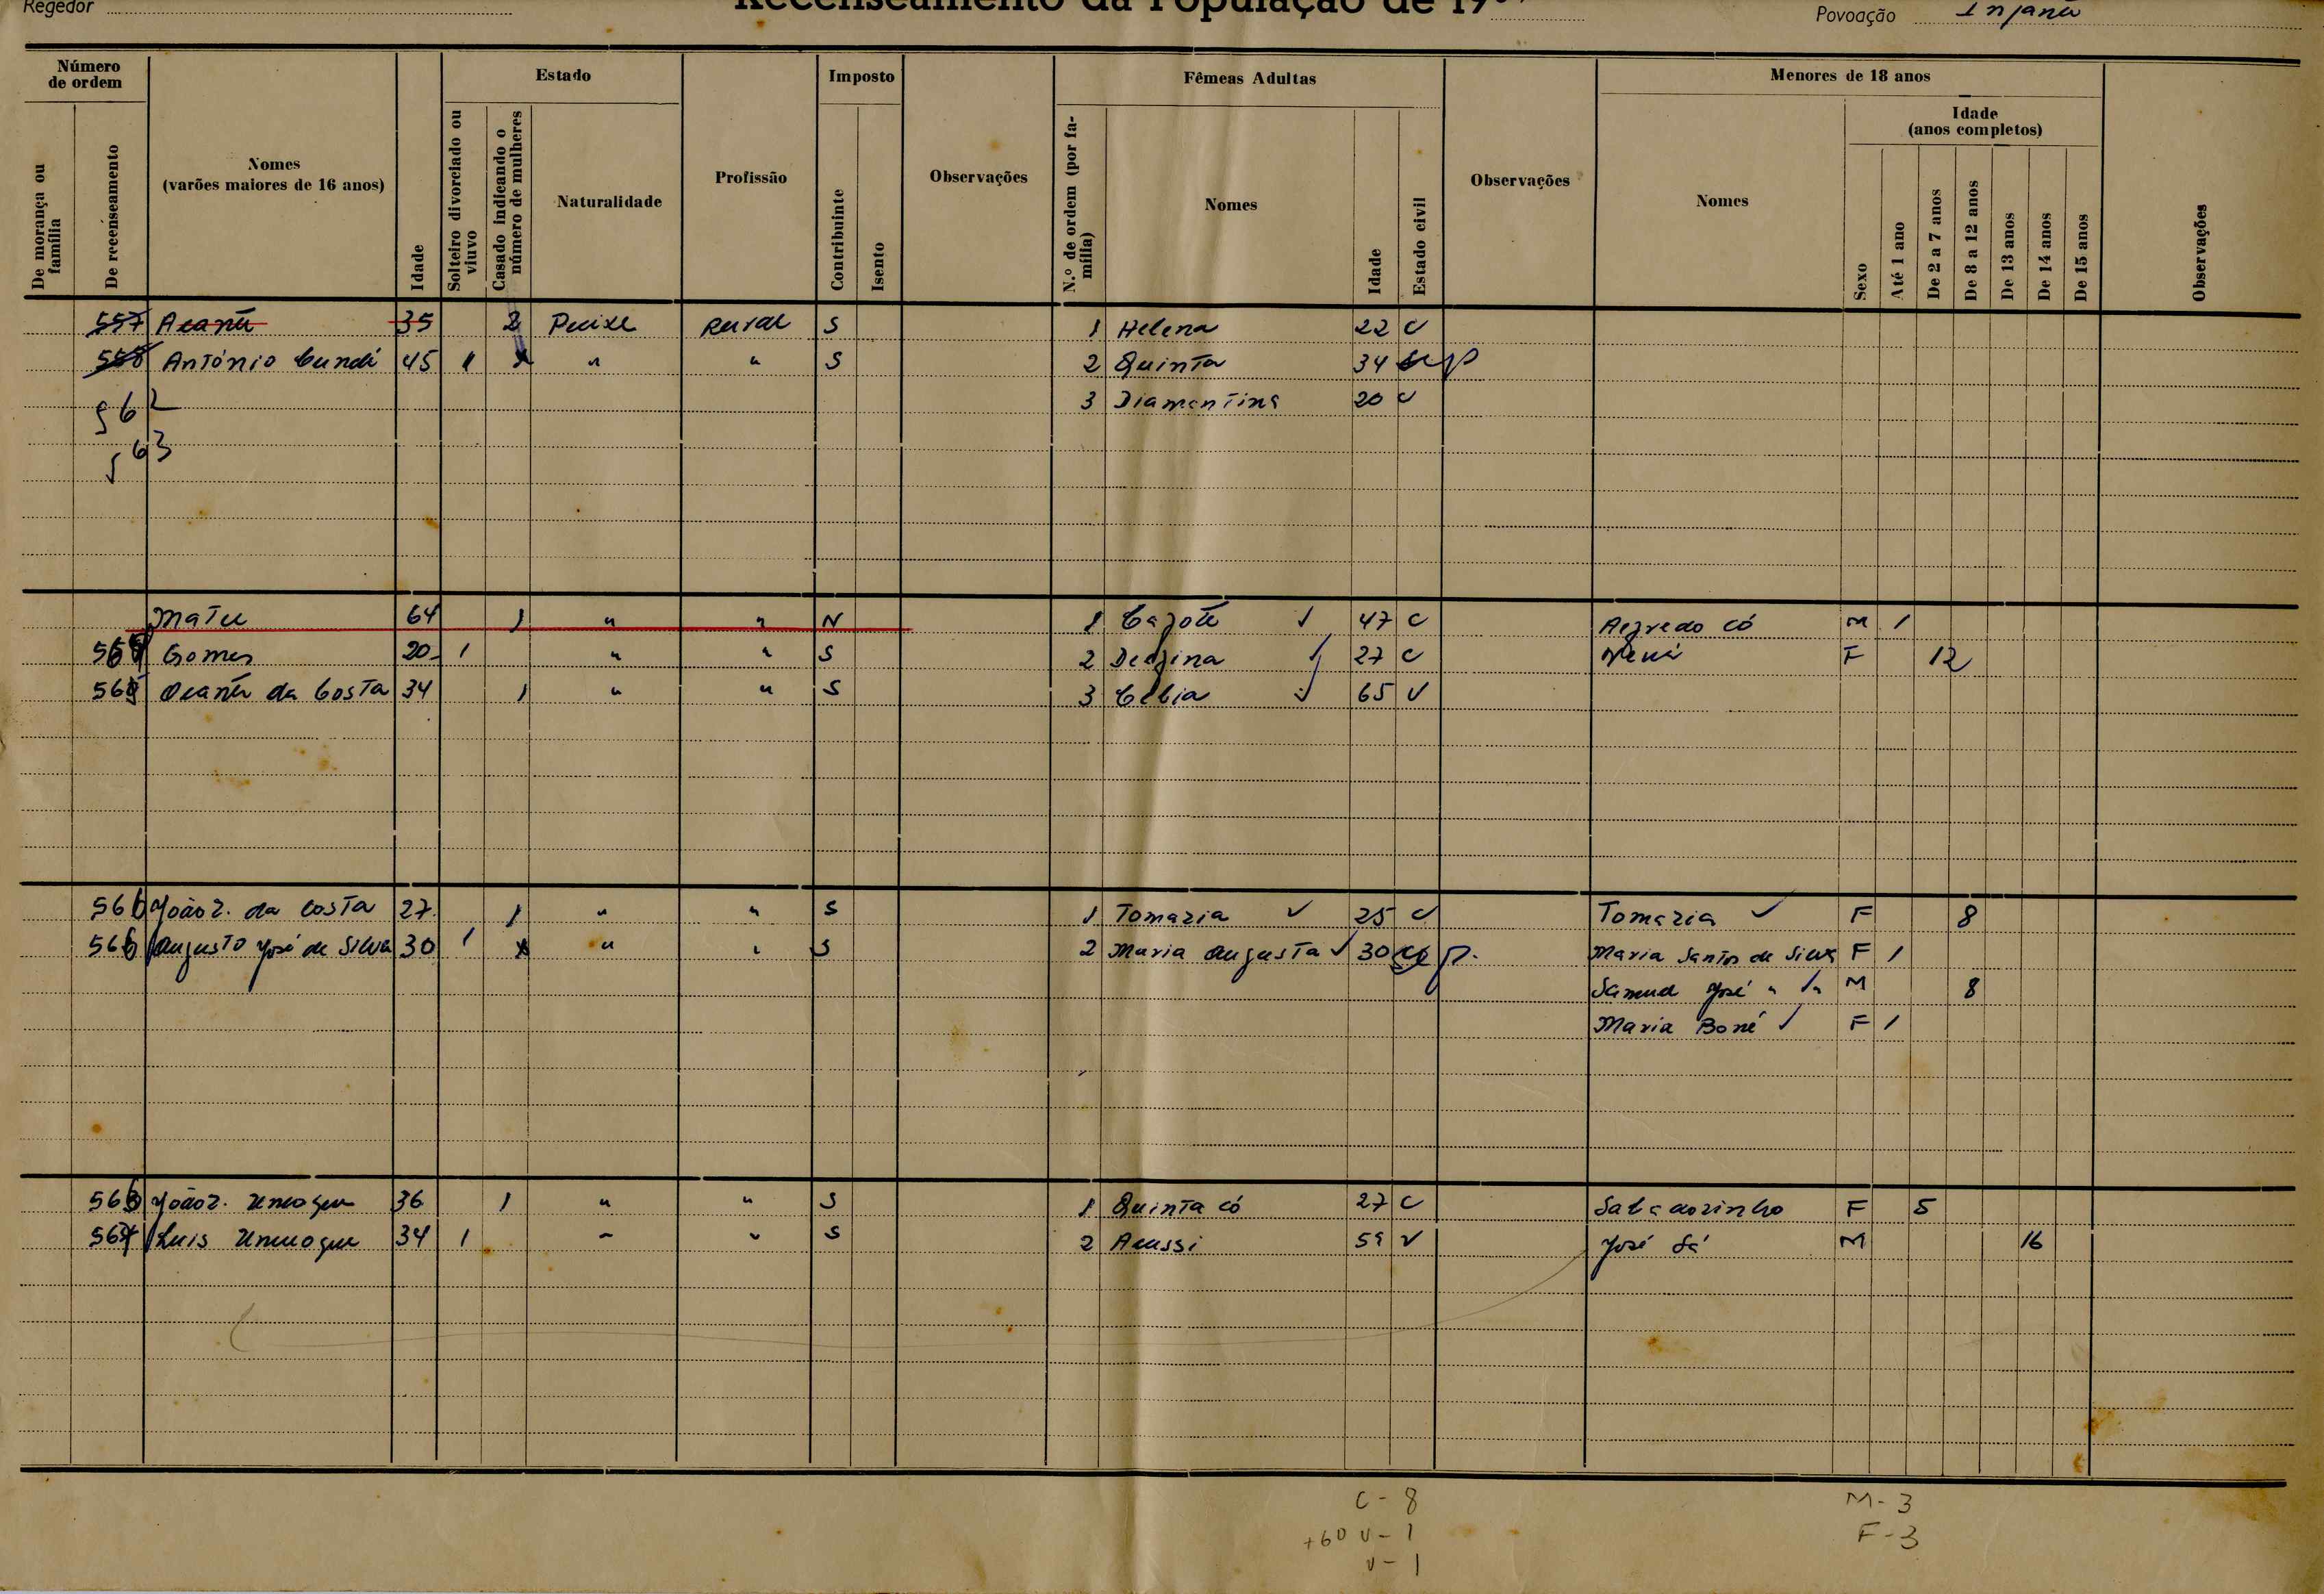 Regedor
Recenseamento da População de 19
Povoação Injanã
Número de ordem
De morança ou família
De recenseamento
Nomes (varões maiores de 16 anos)
Idade
Estado
Solteiro divorciado ou viuvo
Casado indicando o número de mulheres
Naturalidade
Profissão
Imposto
Contribuinte
Isento
Observações
Fêmeas Adultas
N.º de ordem (por família)
Nomes
Idade
Estado civil
Observações
Menores de 18 anos
Nomes
Sexo
Idade (anos completos)
Até 1 ano
De 2 a 7 anos
De 8 a 12 anos
De 13 anos
De 14 anos
De 15 anos
Observações
557 35 2 Peixe Rural S 1 Helena 22 C
558 António Cundi 45 1 " " S 2 Quinta 34 P
562 3 Diamantina 20 C
563
Matu 64 1 " " N 1 Cajote 47 C Alfredo Có M 1
Gomes 20 1 " " S 2 27 C F 12
da Costa 34 1 " " S 3 65 V
566 João Z. da Costa 27 1 " " S 1 Tomazia 25 C Tomazia F 8
566 Augusto José de Silva 30 1 " " S 2 Maria Augusta 30 p. Maria Santos de Silva F 1
Samuel José " " M 8
Maria Boné F 1
João Z. 36 1 " " S 1 Quinta Có 27 C F 5
567 Luis 34 1 " " S 2 Acussi 59 V José Sá M 16
C - 8
+60 V - 1
V - 1
M - 3
F - 3